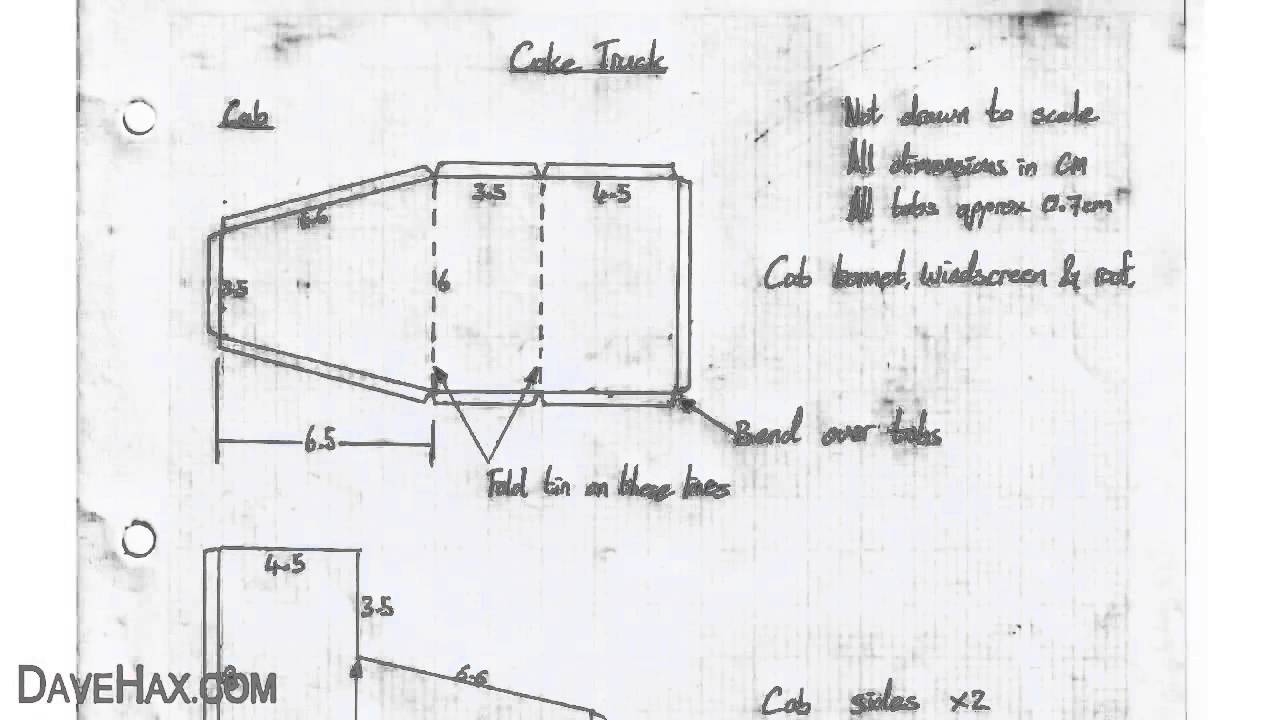 Coke Truck
Cab
Not drawn to scale
All dimensions in CM
All tabs approx 0.7cm
3.5
4.5
6.6
Cab bonnet, windscreen & roof.
3.5
6
Bend over tabs
6.5
Fold tin on these lines
4.5
3.5
6.6
DAVEHAX.COM
Cab sides x2